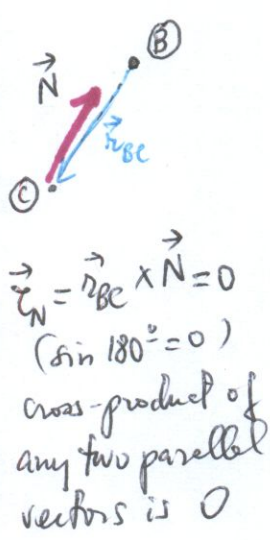 B
N⃗
r⃗_BC
C
τ⃗_N = r⃗_BC × N⃗ = 0
(sin 180° = 0)
cross-product of
any two parallel
vectors is 0